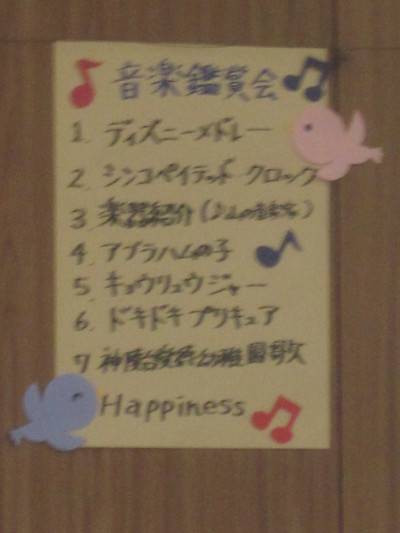 音楽鑑賞会
1. ディズニーメドレー
2. シンコペイテッド クロック
3. 楽器紹介
4. アブラハムの子
5. キョウリュウジャー
6. ドキドキプリキュア
7 幼稚園歌
Happiness